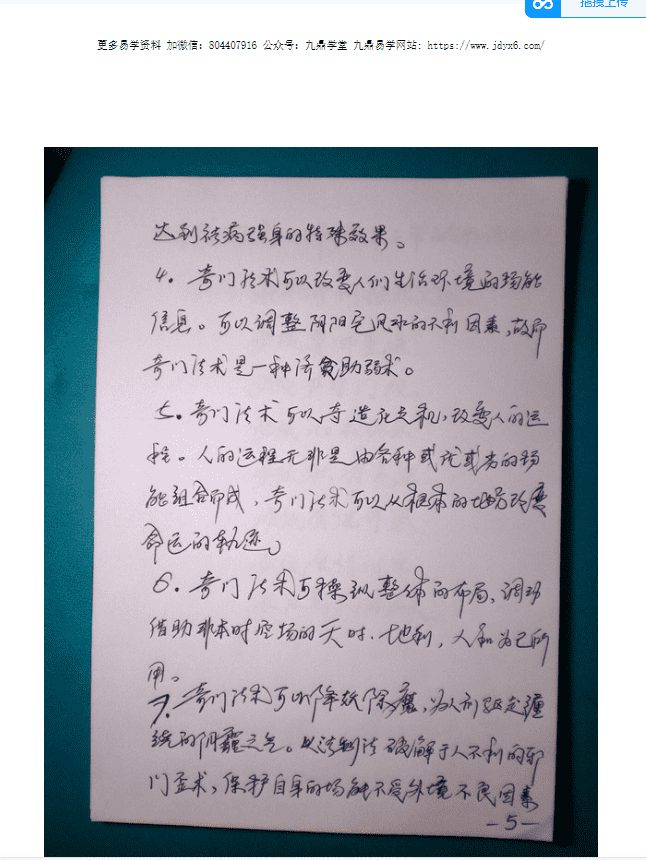 拖拽上传
更多易学资料 加微信: 804407916 公众号: 九鼎学堂 九鼎易学网站: https://www.jdyx6.com/
达到祛病强身的特殊效果。
4. 奇门法术可以改变人们生活环境的场能
信息。可以调整阴阳宅风水的不利因素,故而
奇门法术是一种济贫助弱术。
5. 奇门法术可以夺造化之机,改变人的运
程。人的运程无非是由各种或优或劣的场
能组合而成,奇门法术可以从根本的地方改变
命运的轨迹。
6. 奇门法术可操纵整体的布局,调动
借助非本时空场的天时、地利,人和为己所
用。
7. 奇门法术可以降妖除魔,为人们驱走缠
绕的阴霾之气。以法制法破解于人不利的邪
门歪术,保护自身的场能不受外境不良因素
-5-